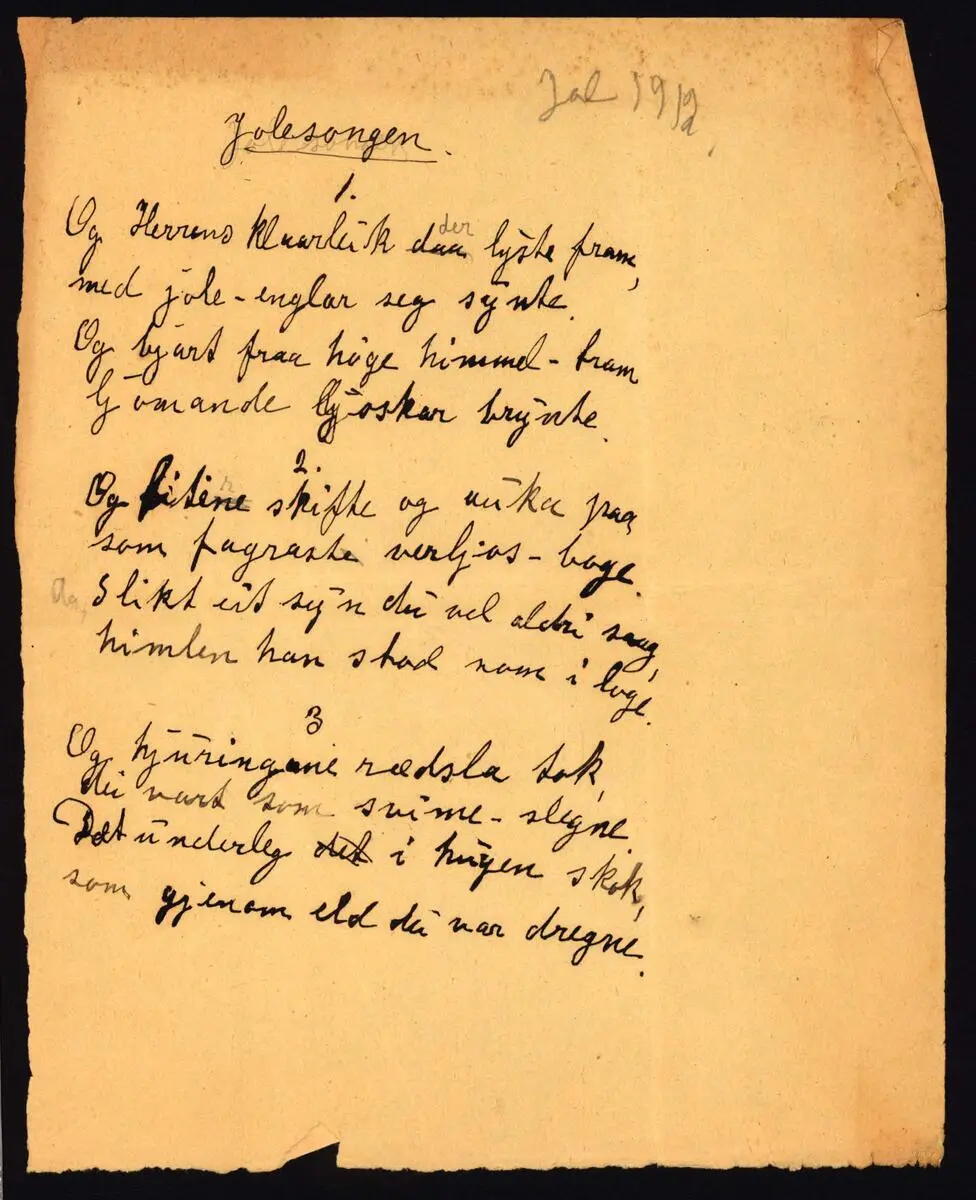 Jol 1912
Jolesongen.
1.
Og Herrens klaarleik der lyste fram,
med jole-englar seg synte.
Og bjart fraa höge himmel-tram
ljomande ljoskar brynte.
2.
Og litine skifte og auka paa,
som fagraste verljos-boge.
Slikt eit syn du vel aldri saag,
himlen han stod som i loge.
3
Og hjuringane rædsla tok,
dei vart som svime-slegne.
Det underleg det i hugen skok,
som gjenom eld dei var dregne.